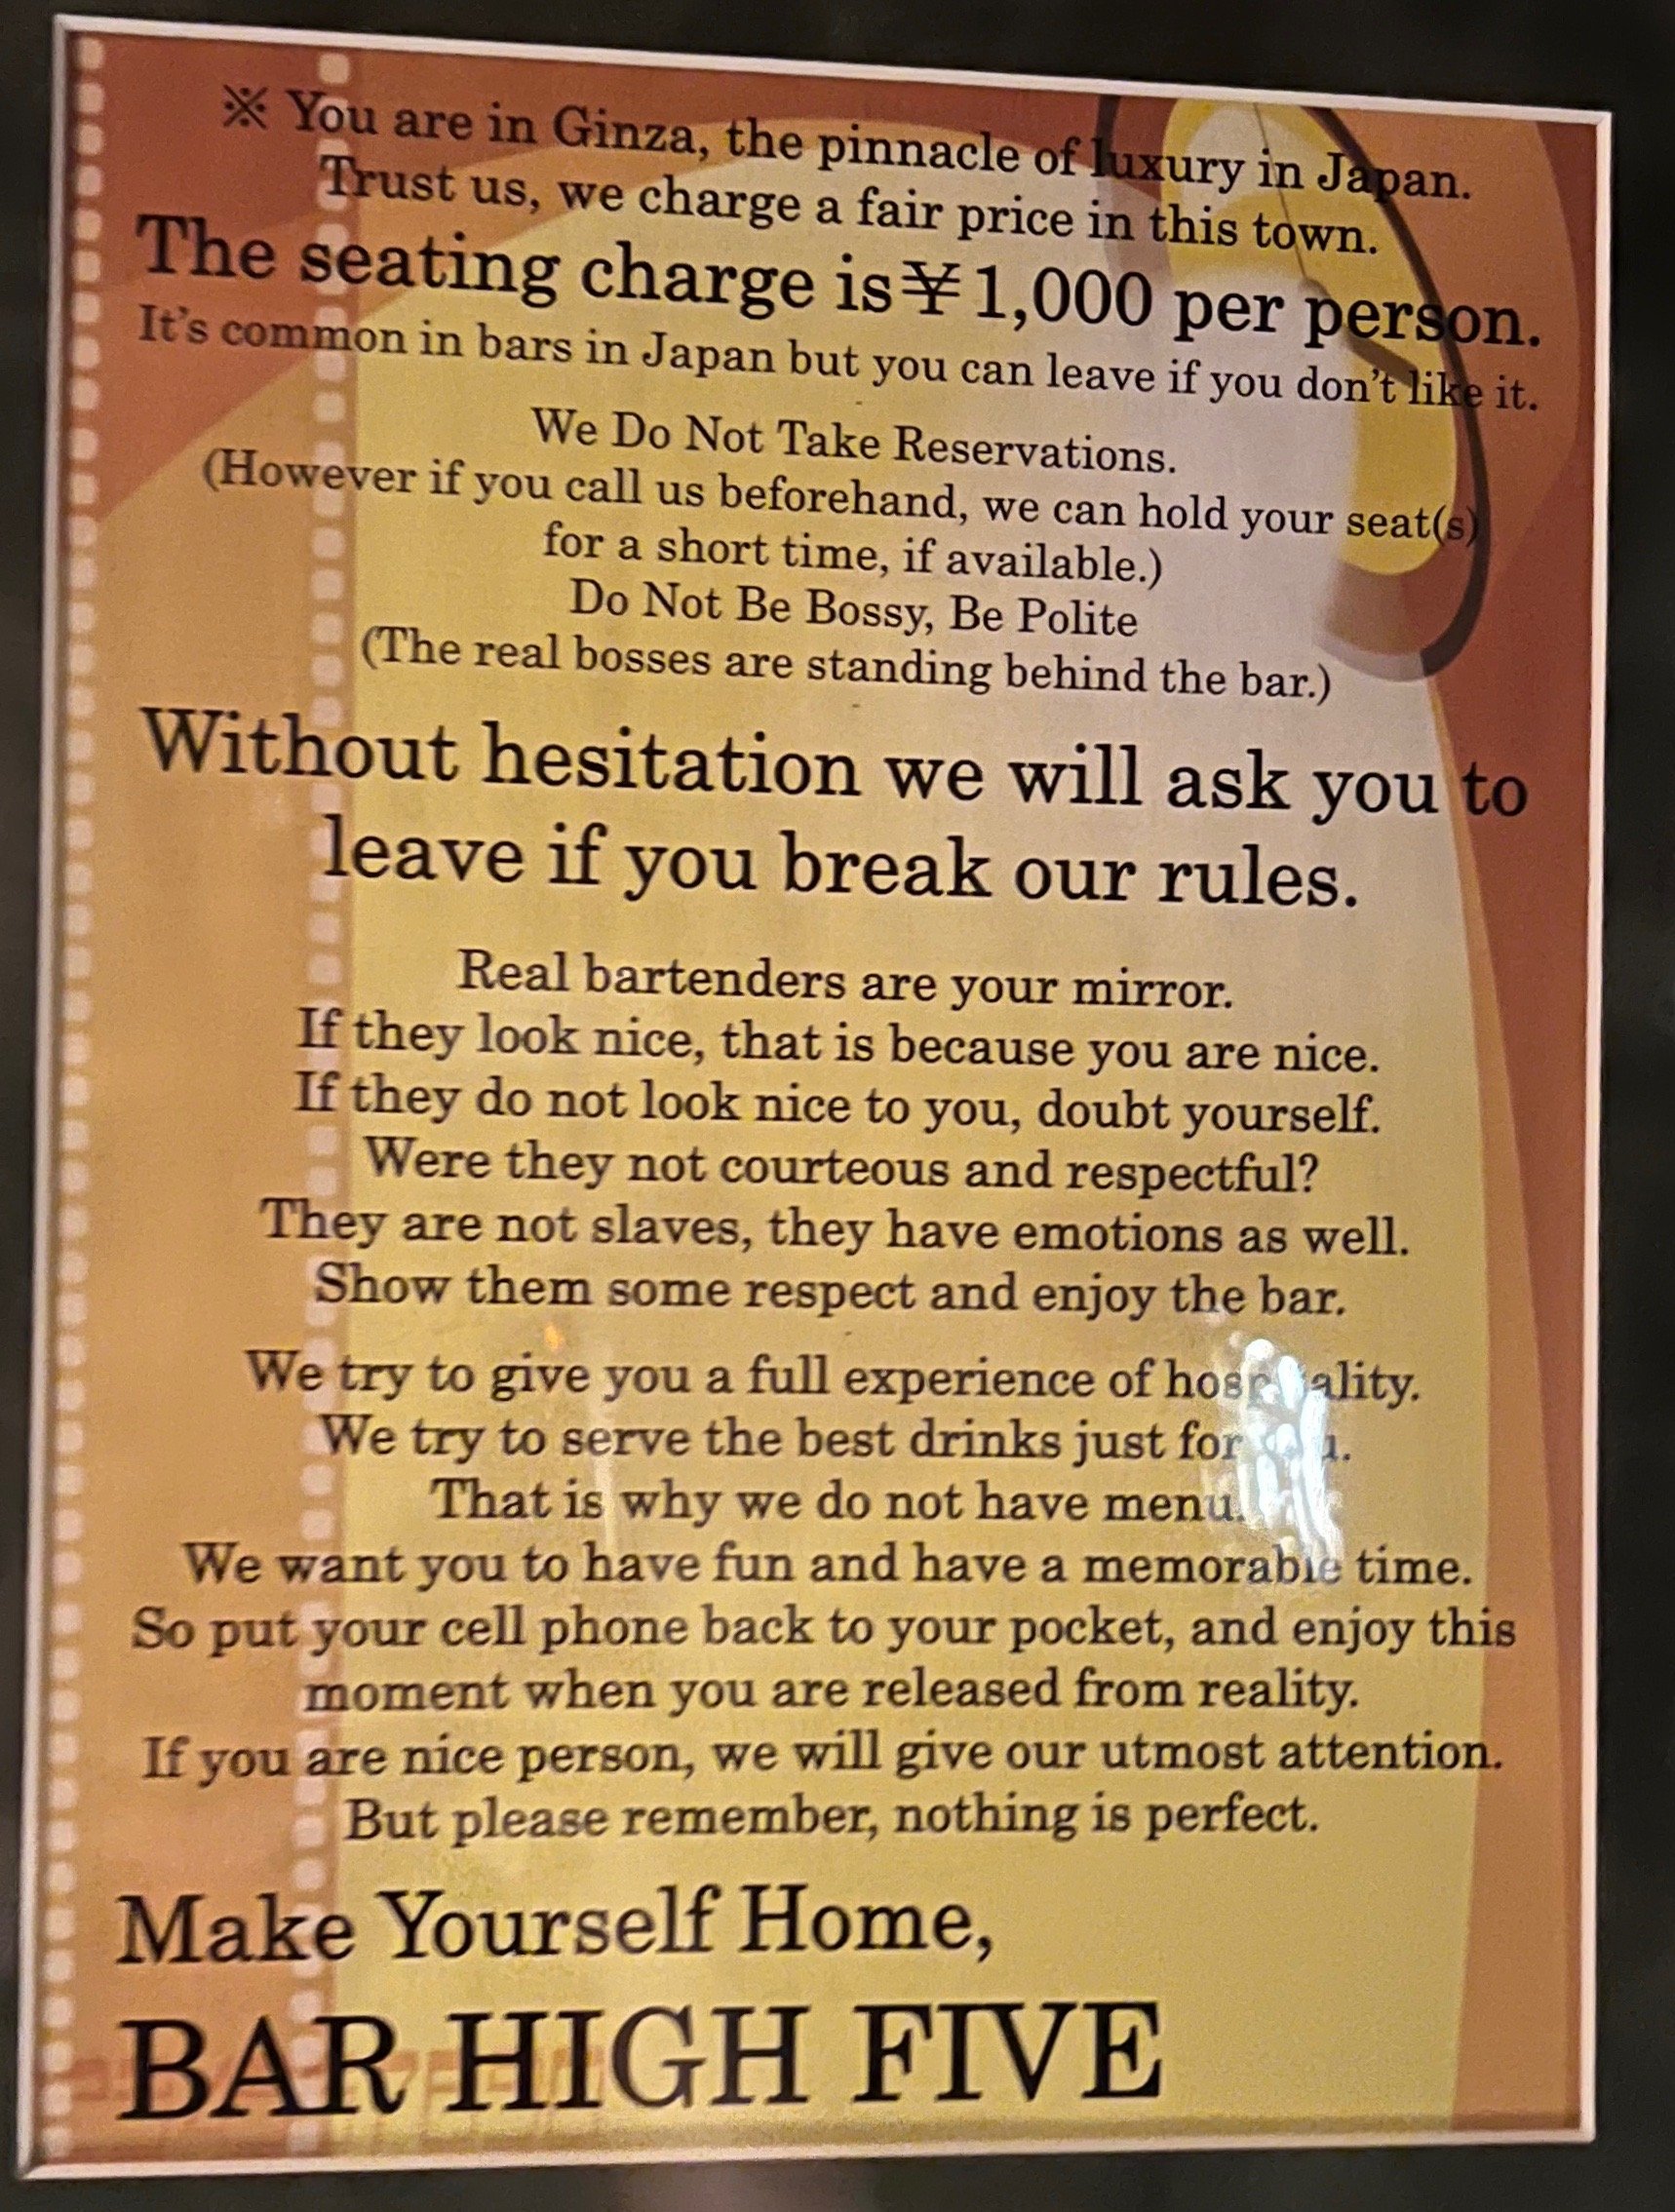 ※ You are in Ginza, the pinnacle of luxury in Japan.
Trust us, we charge a fair price in this town.
The seating charge is¥1,000 per person.
It's common in bars in Japan but you can leave if you don't like it.
We Do Not Take Reservations.
(However if you call us beforehand, we can hold your seat(s)
for a short time, if available.)
Do Not Be Bossy, Be Polite
(The real bosses are standing behind the bar.)
Without hesitation we will ask you to
leave if you break our rules.
Real bartenders are your mirror.
If they look nice, that is because you are nice.
If they do not look nice to you, doubt yourself.
Were they not courteous and respectful?
They are not slaves, they have emotions as well.
Show them some respect and enjoy the bar.
We try to give you a full experience of hospitality.
We try to serve the best drinks just for you.
That is why we do not have menu.
We want you to have fun and have a memorable time.
So put your cell phone back to your pocket, and enjoy this
moment when you are released from reality.
If you are nice person, we will give our utmost attention.
But please remember, nothing is perfect.
Make Yourself Home,
BAR HIGH FIVE